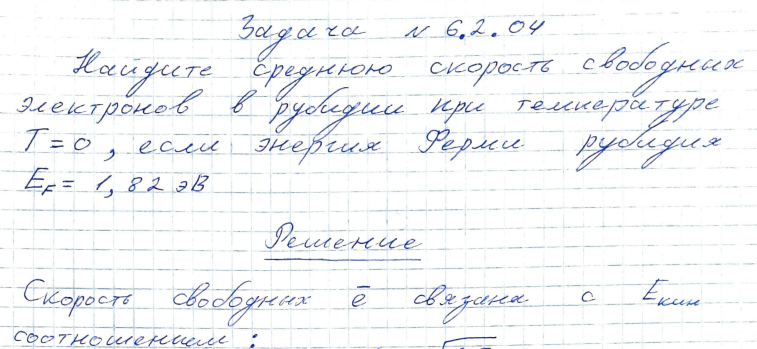 Задача № 6.2.04
Найдите среднюю скорость свободных
электронов в рубидии при температуре
T = 0, если энергия Ферми рубидия
E_F = 1,82 эВ
Решение
Скорость свободных ē связана с E_кин
соотношением: